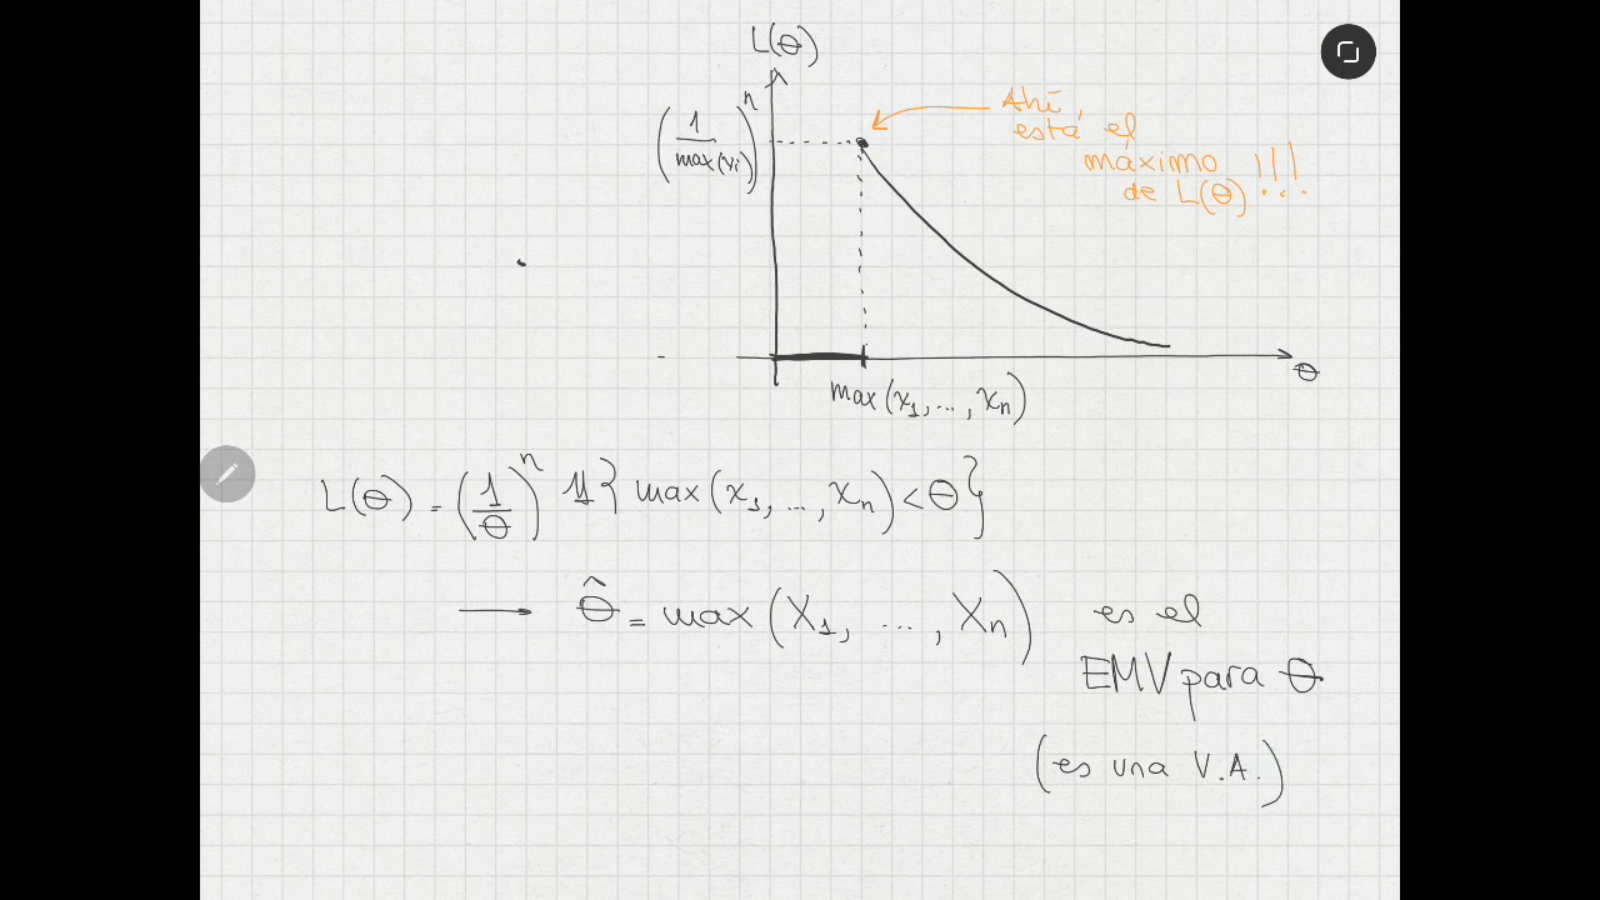 L(θ)
(1/max(xi))^n
Ahí
está el
máximo
de L(θ) !!!
θ
max(x1, ..., xn)
L(θ) = (1/θ)^n 1{max(x1, ..., xn) < θ}
→ θ̂ = max(X1, ..., Xn) es el
EMV para θ
(es una V.A.)